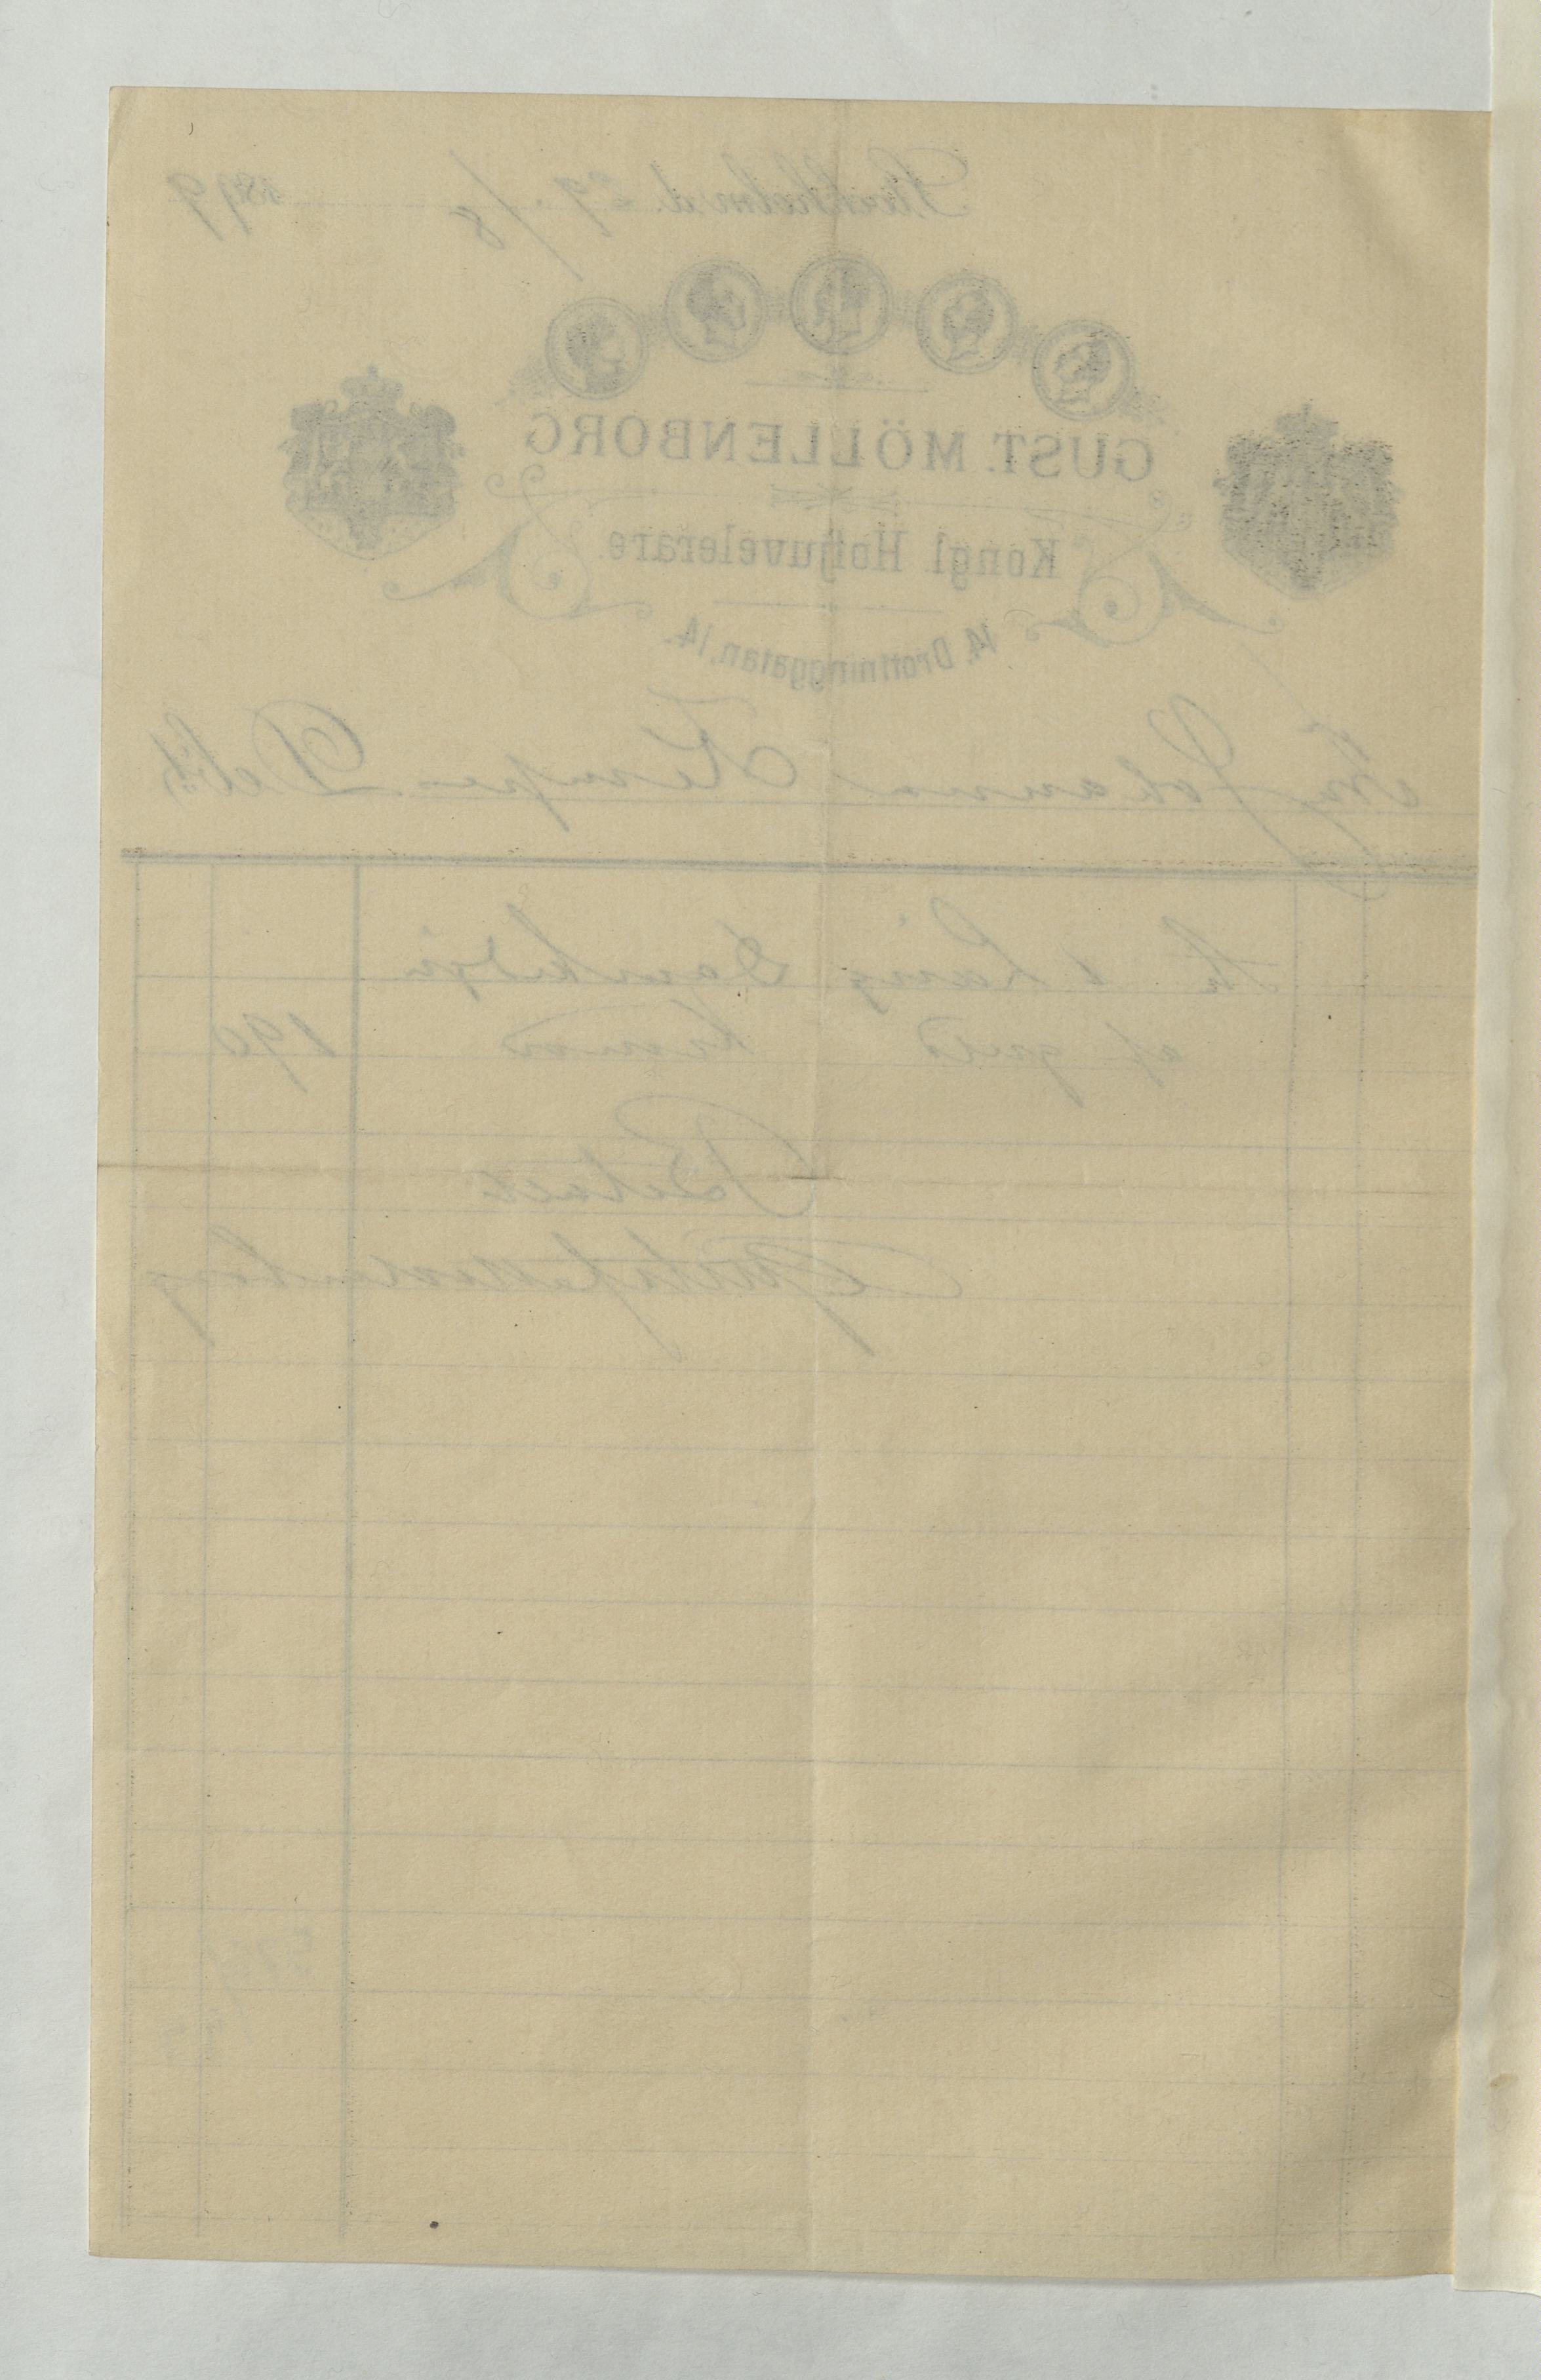 Stockholm d. 29/8 1899
GUST. MÖLLENBORG
Kongl. Hofjuvelerare.
14, Drottninggatan, 14.
Johanna Kempe Debet
1 Lång Damkedja
af guld Kronor 190
Betalt
Gustaf Möllenborg